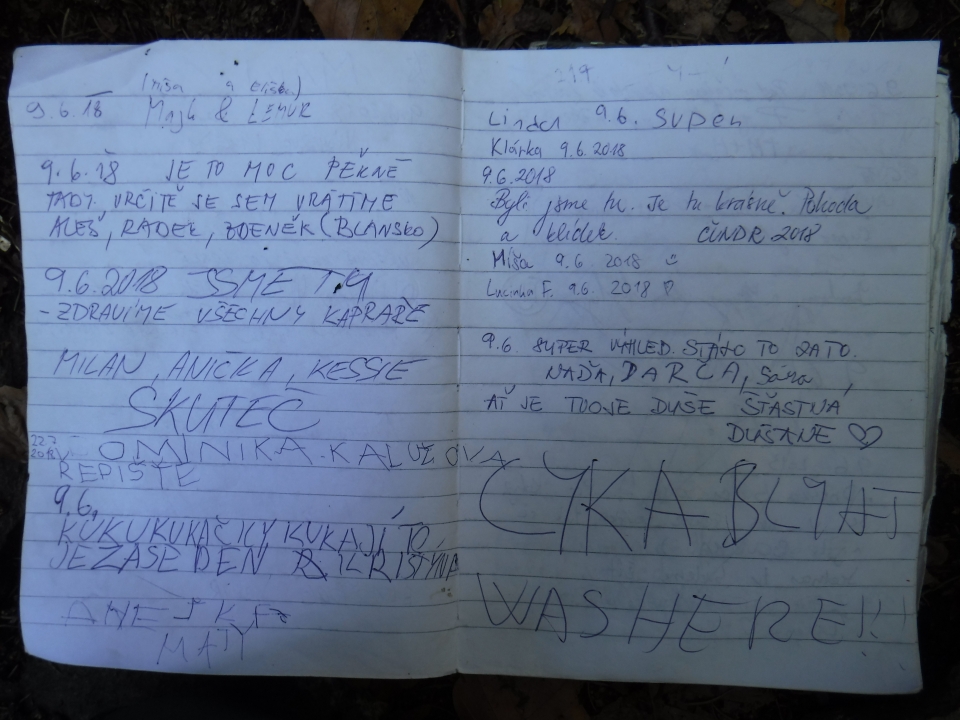 (míša a eliška)
9.6.18 Majk & LEMUR
9.6.18 JE TO MOC PĚKNĚ
TADY. URČITĚ SE SEM VRÁTÍME
ALEŠ, RADEK, ZDENĚK (BLANSKO)
9.6.2018 JSME TY
- ZDRAVÍME VŠECHNY KAPRAŘE
MILAN, ANIČKA, KESSIE
SKUTEČ
22.7 2018 DOMINIKA KALUŽOVÁ
ŘEPIŠTĚ
9.6.
KUKUKUKAČKY KUKAJÍ TO
JE ZASE DEN KRISTÝNA
ANEŠKA
MATY
Linda 9.6. SUPER
Klárka 9.6.2018
9.6.2018
Byli jsme tu. Je tu krásně. Pohoda
a klídek. ČINDR 2018
Míša 9.6 2018
Lucinka F. 9.6. 2018 ♡
9.6. SUPER VÝHLED. STÁLO TO ZA TO.
NAĎA, DARČA, Sára,
AŤ JE TVOJE DUŠE ŠŤASTNÁ
DUŠANE ♡
CYKA BLYAT
WAS HERE!!!